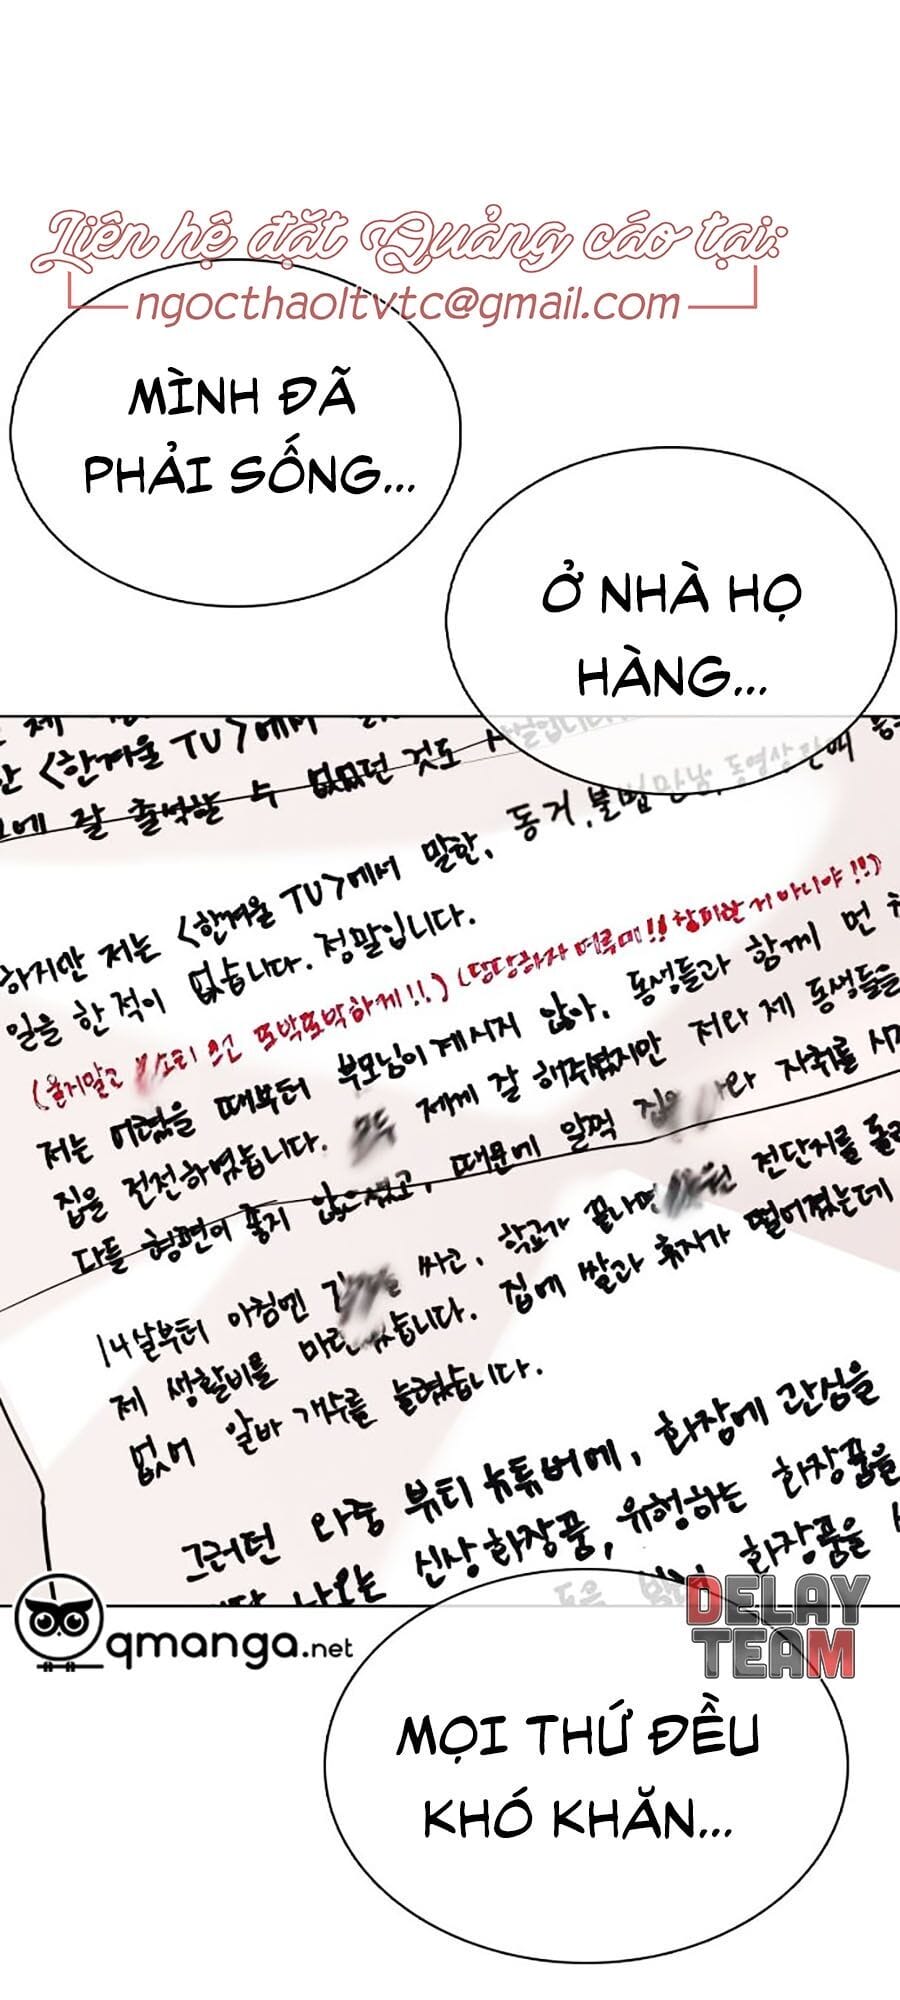 Liên hệ đặt Quảng cáo tại:
ngocthaoltvtc@gmail.com
MÌNH ĐÃ
PHẢI SỐNG...
Ở NHÀ HỌ
HÀNG...
제
<한겨울 TV>에서
에 잘 출석할 수 없었던 것도
하지만 저는 <한겨울 TV>에서 말한, 동거, 불법만남, 동영상
일을 한 적이 없습니다. 정말입니다.
(울지말고 또박또박하게!!) (당당하자 여루미!! 창피한 거 아니야!!)
저는 어렸을 때부터 부모님이 계시지 않아, 동생들과 함께 먼
집을 전전하였습니다. 모두 제게 잘 해주셨지만 저와 제 동생들을
다들 형편이 좋지 않으셨고, 때문에 일찍 나와 자취를
14살부터 아침엔 싸고, 학교가 끝나면 전단지를
제 생활비를 마련했습니다. 집에 쌀과 휴지가 떨어졌는데
없어 알바 개수를 늘렸습니다.
그러던 와중 뷰티 뉴튜버에, 화장에 관심을
나오는 신상화장품, 유행하는 화장품을
화장품을
qmanga.net
DELAY
TEAM
MỌI THỨ ĐỀU
KHÓ KHĂN...